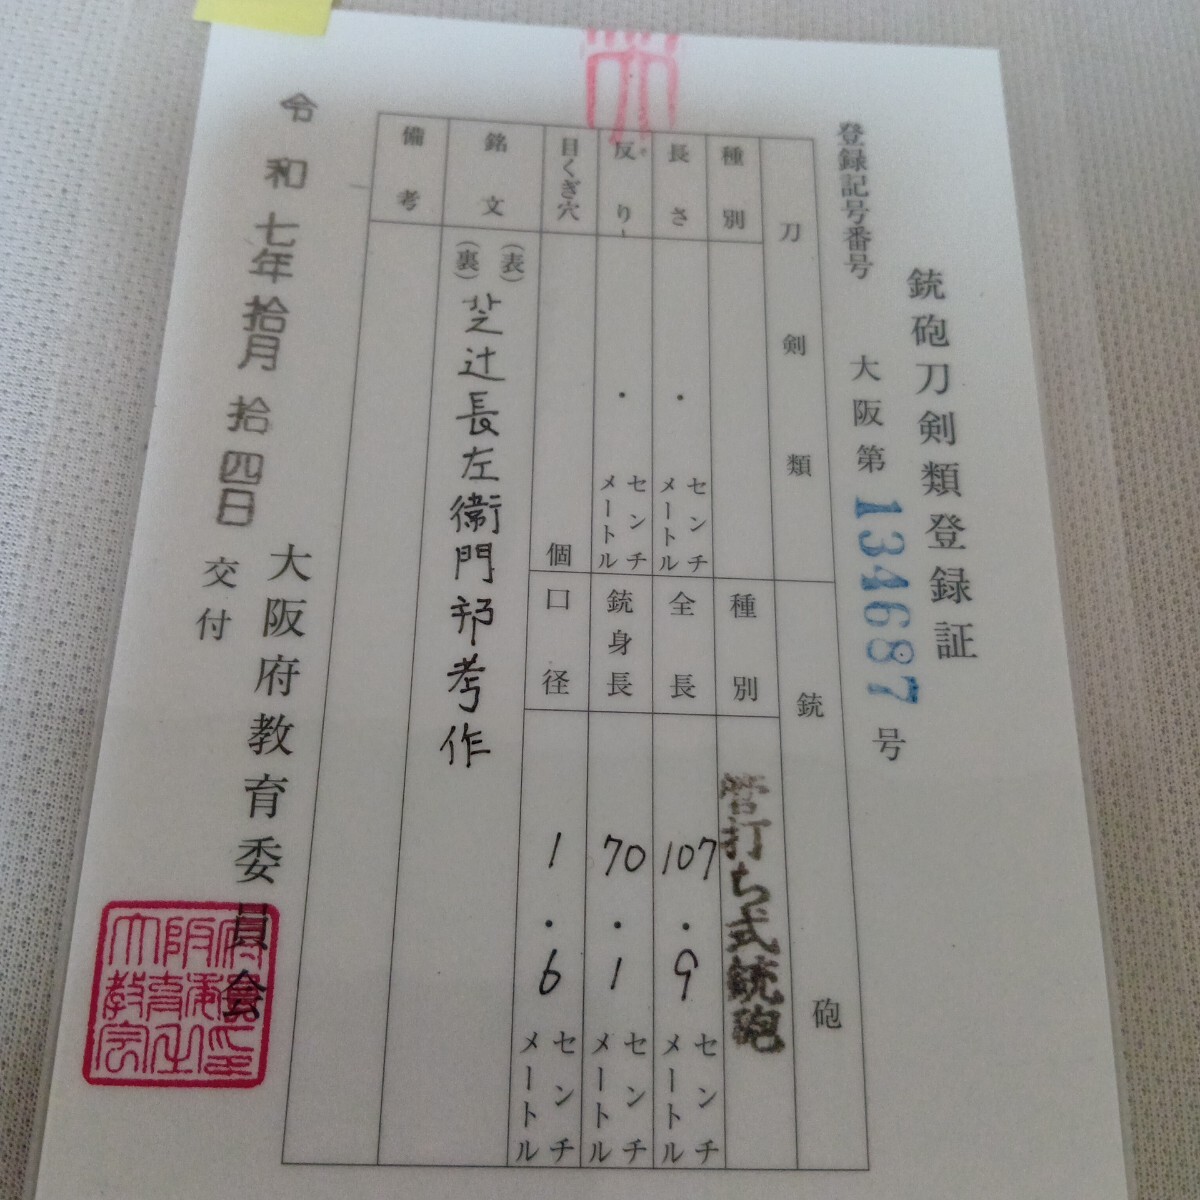 銃砲刀剣類登録証
登録記号番号 大阪第 134687 号
刀剣類
種別
長さ ・ センチメートル
反り ・ センチメートル
目くぎ穴 個
銃砲
種別 管打ち式銃砲
全長 107.9 センチメートル
銃身長 70.1 センチメートル
口径 1.6 センチメートル
銘文 (表)
(裏) 芝辻長左衛門邦考作
備考
令和七年拾月拾四日 交付
大阪府教育委員会